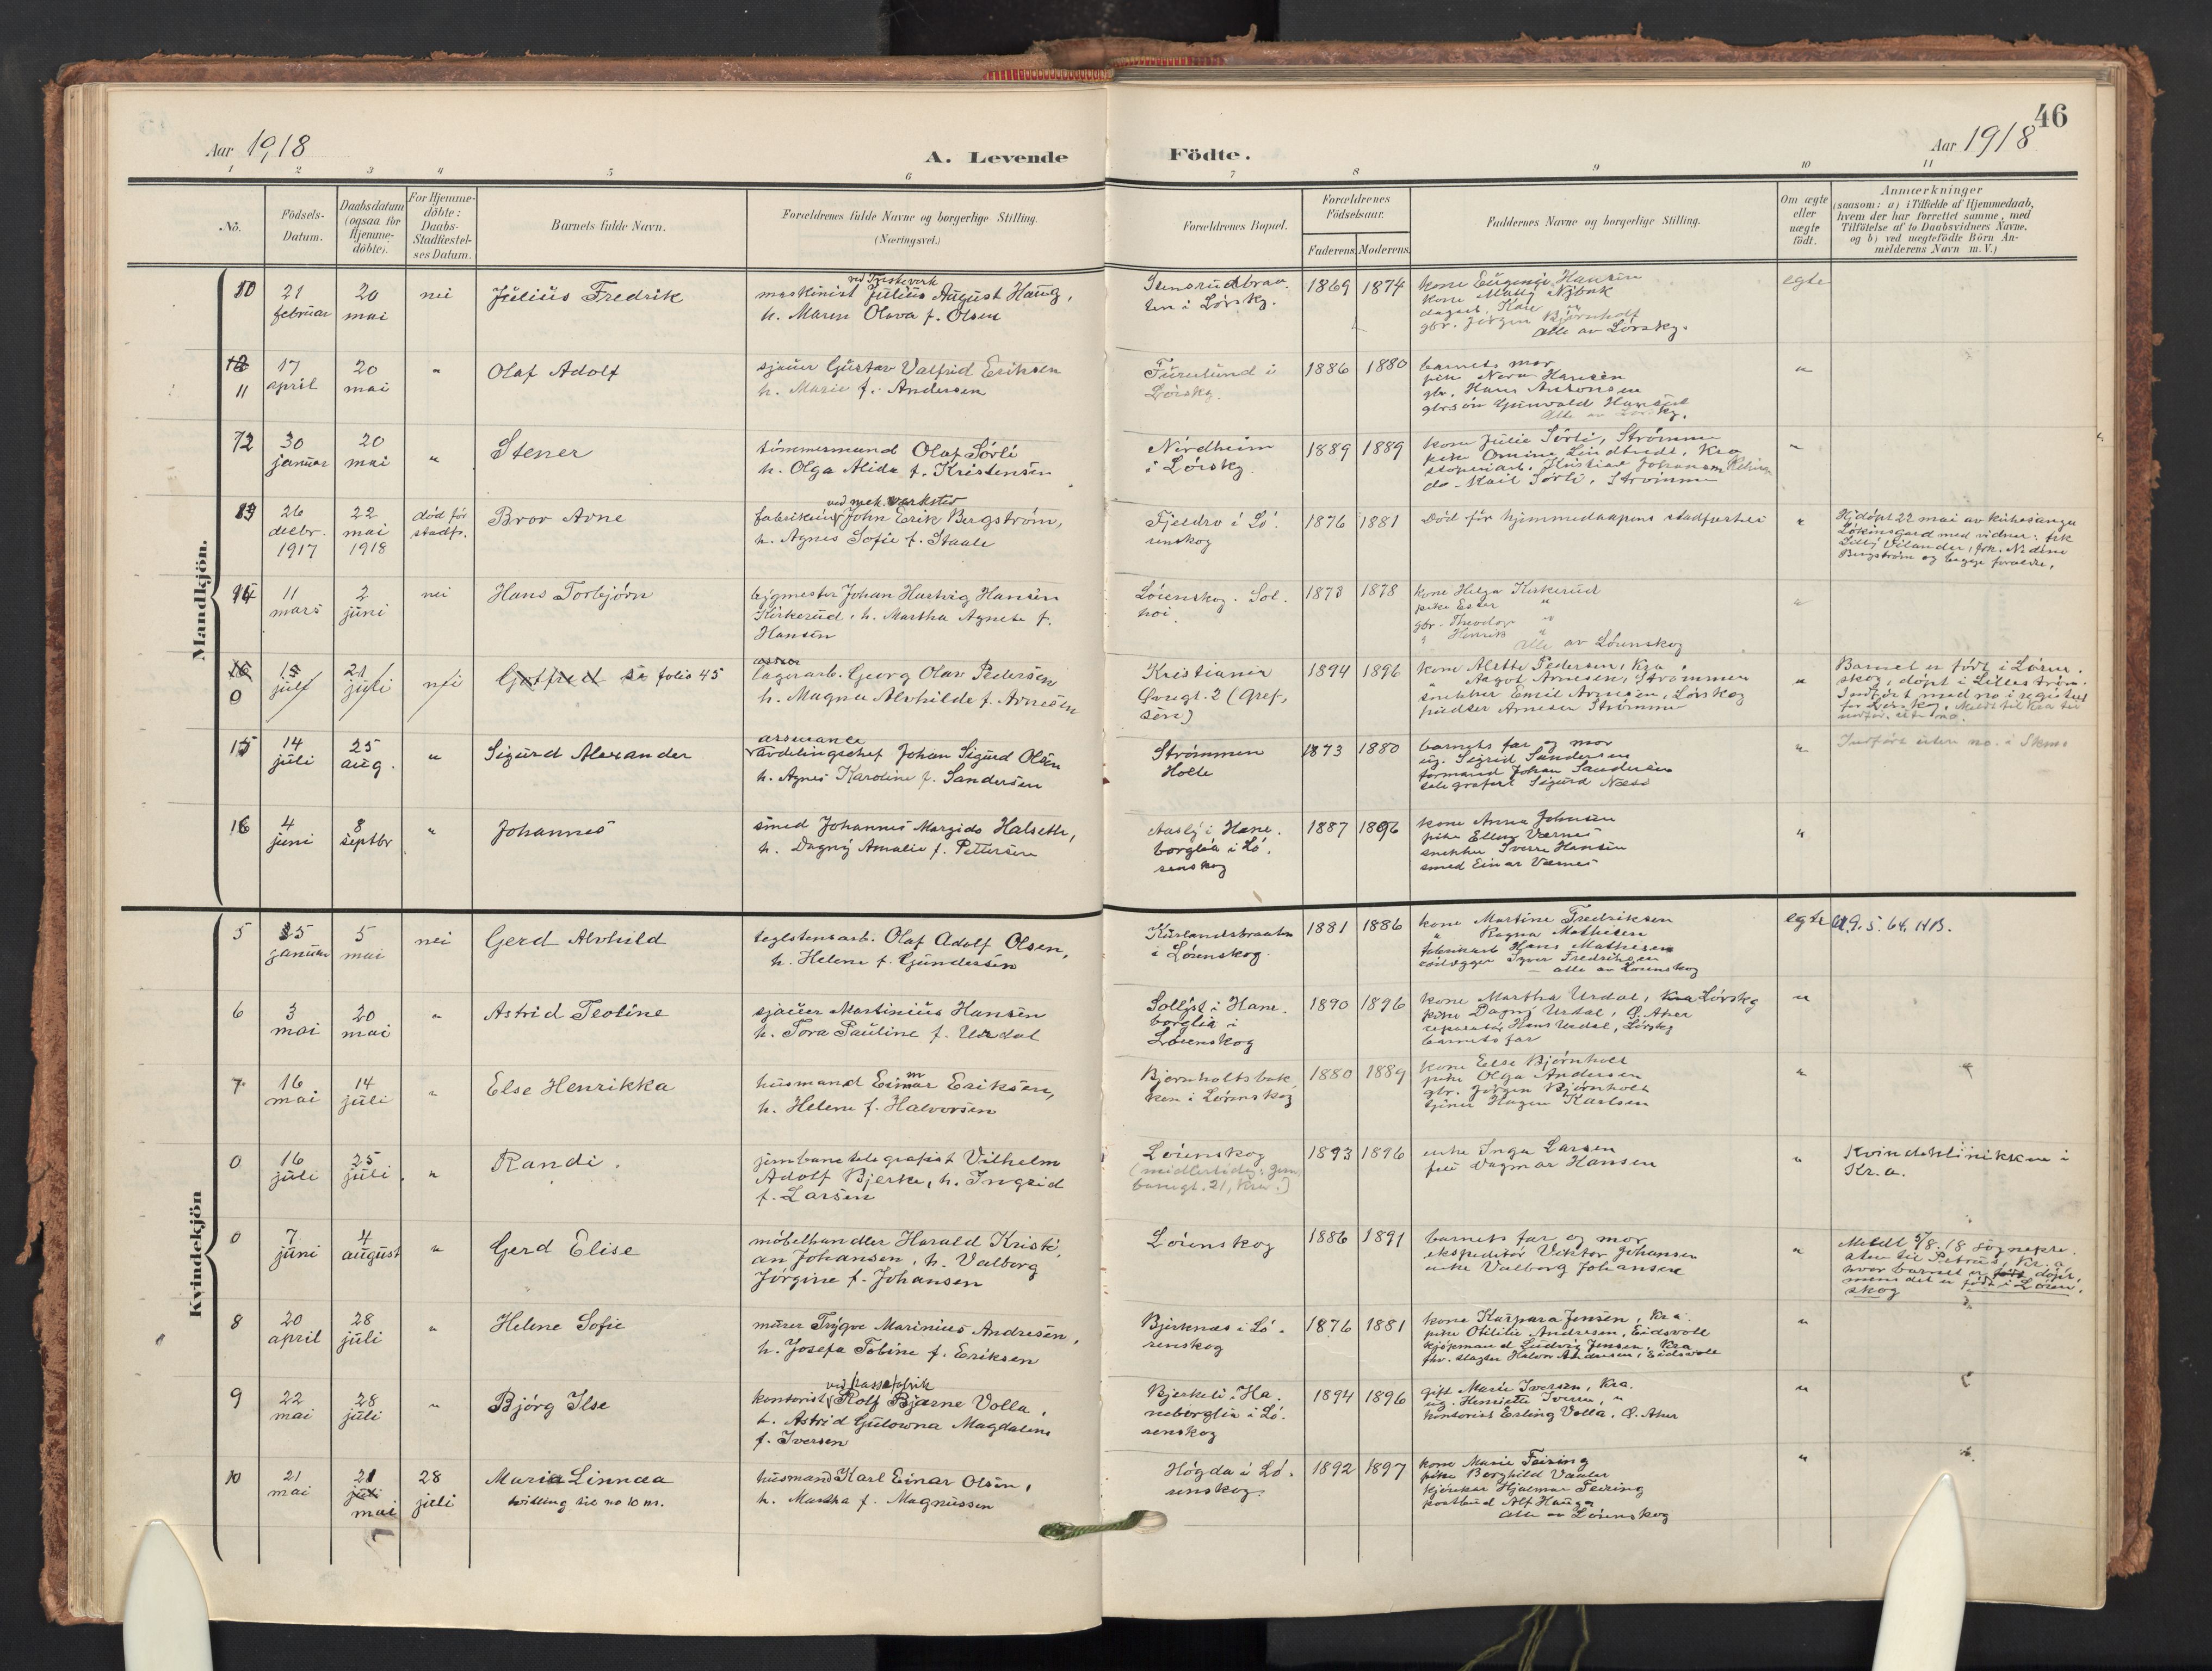 46
Aar 1918
A. Levende
Födte.
Aar 1918
1 2 3 4 5 6 7 8 9 10 11
No.
Födsels-
Datum.
Daabsdatum
(ogsaa for
Hjemme-
döbte).
For Hjemme-
döbte:
Daabs-
Stadfæstel-
ses Datum.
Barnets fulde Navn.
Forældrenes fulde Navne og borgerlige Stilling.
(Næringsvei.)
Forældrenes Bopæl.
Forældrenes
Födselsaar.
Faderens. Moderens.
Faddernes Navne og borgerlige Stilling.
Om ægte
eller
uægte
födt.
Anmærkninger
(saasom: a) i Tilfælde af Hjemmedaab,
hvem der har forrettet samme, med
Tilföielse af to Daabsvidners Navne.
og b) ved uægtefödte Börn An-
melderens Navn m. V.)
Mandkjön.
10
21
februar
20
mai
nei
Julius Fredrik
ved Træskeverk
maskinist Julius August Haug,
h. Maren Olava f. Olsen
Stensrudbraa-
ten i Lörskg.
1869 1874
kone Eugenie Hansen
kone Mally Nybak
dagarb. Kare "
gbr. Jörgen Björnholt
alle av Lörskg.
egte
11
17
april
20
mai
"
Olaf Adolf
sjauer Gustav Valfrid Eriksen
h. Marie f. Andersen
Furulund i
Lörskg.
1886 1880
barnets mor
pike Nora Hansen
gbr. Hans Antonsen
gbrsön Gunvald Hansen
alle av Lörskg.
"
12
30
januar
20
mai
"
Stener
tömmermand Olaf Sörli
h. Olga Alida f. Kristensen
Nordheim
i Lörskg.
1889 1889
kone Julie Sörli, Strömmen
pike Omine Lindtvedt, Kra
stoperiarb. Kristian Johansen
do- Karl Sörli, Strömmen
"
13
26
decbr.
1917
22
mai
1918
död för
stadf.
Bror Arne
ved mek. verksted
fabrikeier John Erik Bergström,
h. Agnes Sofie f. Staale
Fjeldro i Lö-
renskog
1876 1881
Död för hjemmedaapens stadfæstelse
"
Hj.döpt 22 mai av kirkesanger
Lökensgard med vidner: frk
Lilly Vilander, frk. Nadine
Bergström og begge foreldre.
14
11
mars
2
juni
nei
Hans Torbjörn
bygmester Johan Hartvig Hansen
Kirkerud, h. Martha Agnete f.
Hansen
Löienskog. Sol-
hoi.
1873 1878
kone Helga Kirkerud
pike Ester "
gbr. Theodor "
" Henrik "
alle av Löienskog
"
0
15
juli
21
juli
nei
Gotfred se folio 45
lagerarb. Georg Olav Pedersen
h. Magna Alvhilde f. Arnesen
Kristiania
Övregt. 2 (Gref-
sen.)
1894 1896
kone Alette Pedersen, Kra.
" Aagot Arnesen, Strömmen
snekker Emil Arnesen, Lörskog
pudser Arnesen Strömmen
"
Barnet er födt i Lören-
skog, döpt i Lilleström.
Indfört med no i registret
for Lörskog. Meldt til Kra til
indför. uten no.
15
14
juli
25
aug.
"
Sigurd Alexander
assurance
avdelingschef Johan Sigurd Olsen
h. Agnes Karoline f. Sandersen
Strömmen
Holte
1873 1880
barnets far og mor
ug. Sigrid Sandersen
formand Johan Sandersen
telegrafist Sigurd Næss
"
Indfört uten no. i Skem.
16
4
juni
8
septbr
"
Johannes
smed Johannes Margido Halseth,
h. Dagny Amalie f. Pettersen
Aasly i Hane-
borglia i Lö-
renskog
1887 1896
kone Anna Johnsen
pike Ellen Værnes
snekker Sverre Hansen
smed Einar Værnes
"
Kvindekjön
5
25
januar
5
mai
nei
Gerd Alvhild
teglstensarb. Olaf Adolf Olsen,
h. Helene f. Gundersen
Kurlandsbraaten
i Lörenskog.
1881 1886
kone Martine Fredriksen
" Ragna Mathisen
fabrikarb Hans Mathisen
Syver Fredriksen
— alle av Lörenskog
egte
a 9.5.64. HB.
6
3
mai
20
mai
"
Astrid Teoline
sjauer Martinius Hansen
h. Tora Pauline f. Urdal
Sollyst i Hane-
borglia i
Löienskog
1890 1896
kone Martha Urdal, Lörskg
pike Dagny Urdal, Ö. Aker
reparatör Hans Urdal, Lörskg
barnets far
"
7
16
mai
14
juli
"
Else Henrikka
husmand Einar Eriksen,
h. Helene f. Halvorsen
Bjornholtsbak-
ken i Lörenskog
1880 1889
kone Else Björnholt
pike Olga Andersen
gbr. Jörgen Björnholt
tjener Hagen Karlsen
"
0
16
juli
25
juli
"
Randi.
jernbanetelegrafist Vilhelm
Adolf Bjerke, h. Ingrid
f. Larsen
Lörenskog
(midlertidig: Jern-
banegt. 21, Kra.)
1893 1896
enke Inga Larsen
frue Dagmar Hansen
"
Kvindeklinikken i
Kr.a.
0
7
juni
4
august
"
Gerd Elise
möbelhandler Harald Kristi-
an Johansen, h. Valborg
Jörgine f. Johansen
Löienskog
1886 1891
barnets far og mor
ekspeditör Viktor Johansen
enke Valborg Johansen
"
Meldt 5/8.18 sognepre-
sten til Petrus, Kr.a
hvor barnet er döpt,
mens det er födt i Löien-
skog
8
20
april
28
juli
"
Helene Sofie
murer Trygve Marinius Andresen,
h. Josefa Tobine f. Eriksen
Bjerknæs i Lö-
renskog
1876 1881
kone Kaspara Jensen, Kra.
pike Otililie Andresen, Eidsvoll
kjöpmand Ludvig Jensen, Kra
fhv. slagter Halvor Andresen, Eidsvoll
"
9
22
mai
28
juli
"
Björg Ilse
kontorist Rolf Bjarne Volla,
h. Astrid Gulowna Magdalene
f. Iversen
Bjerkeli i Ha-
neborglia i Lö-
renskog
1894 1896
gift Marie Iversen, Kra.
ug. Henriette Iversen, "
kontorist Erling Volla, Ö. Aker
"
10
21
mai
21
mai
28
juli
Maria Linnæa
tvilling til no 10 m.
husmand Karl Einar Olsen,
h. Martha f. Magnussen
Högda i Lö-
renskog.
1892 1897
kone Marie Feiring
pike Borghild Vaaler
kjörekar Hjalmar Feiring
postbud Alf Hauga
alle av Löienskog
"